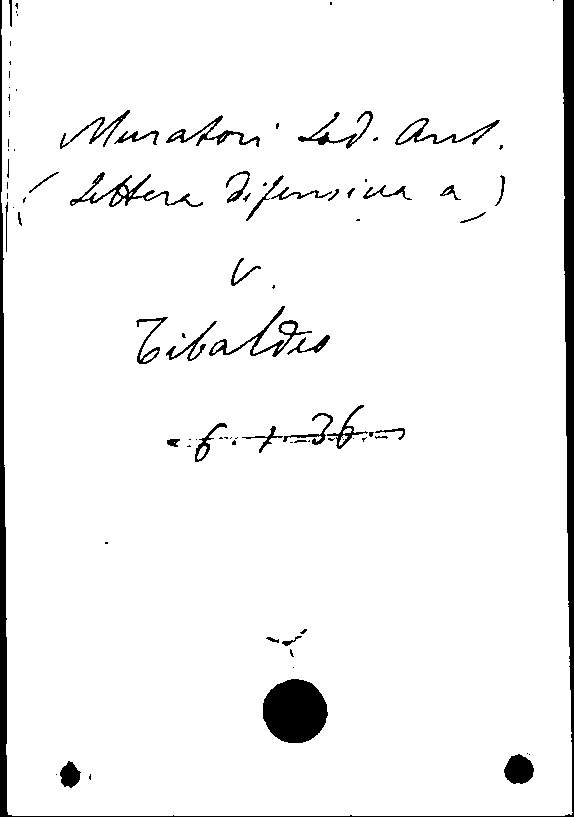 Muratori Lod. Ant.
(Lettera difensiva a)
v.
Tibaldeo
6.1.36.